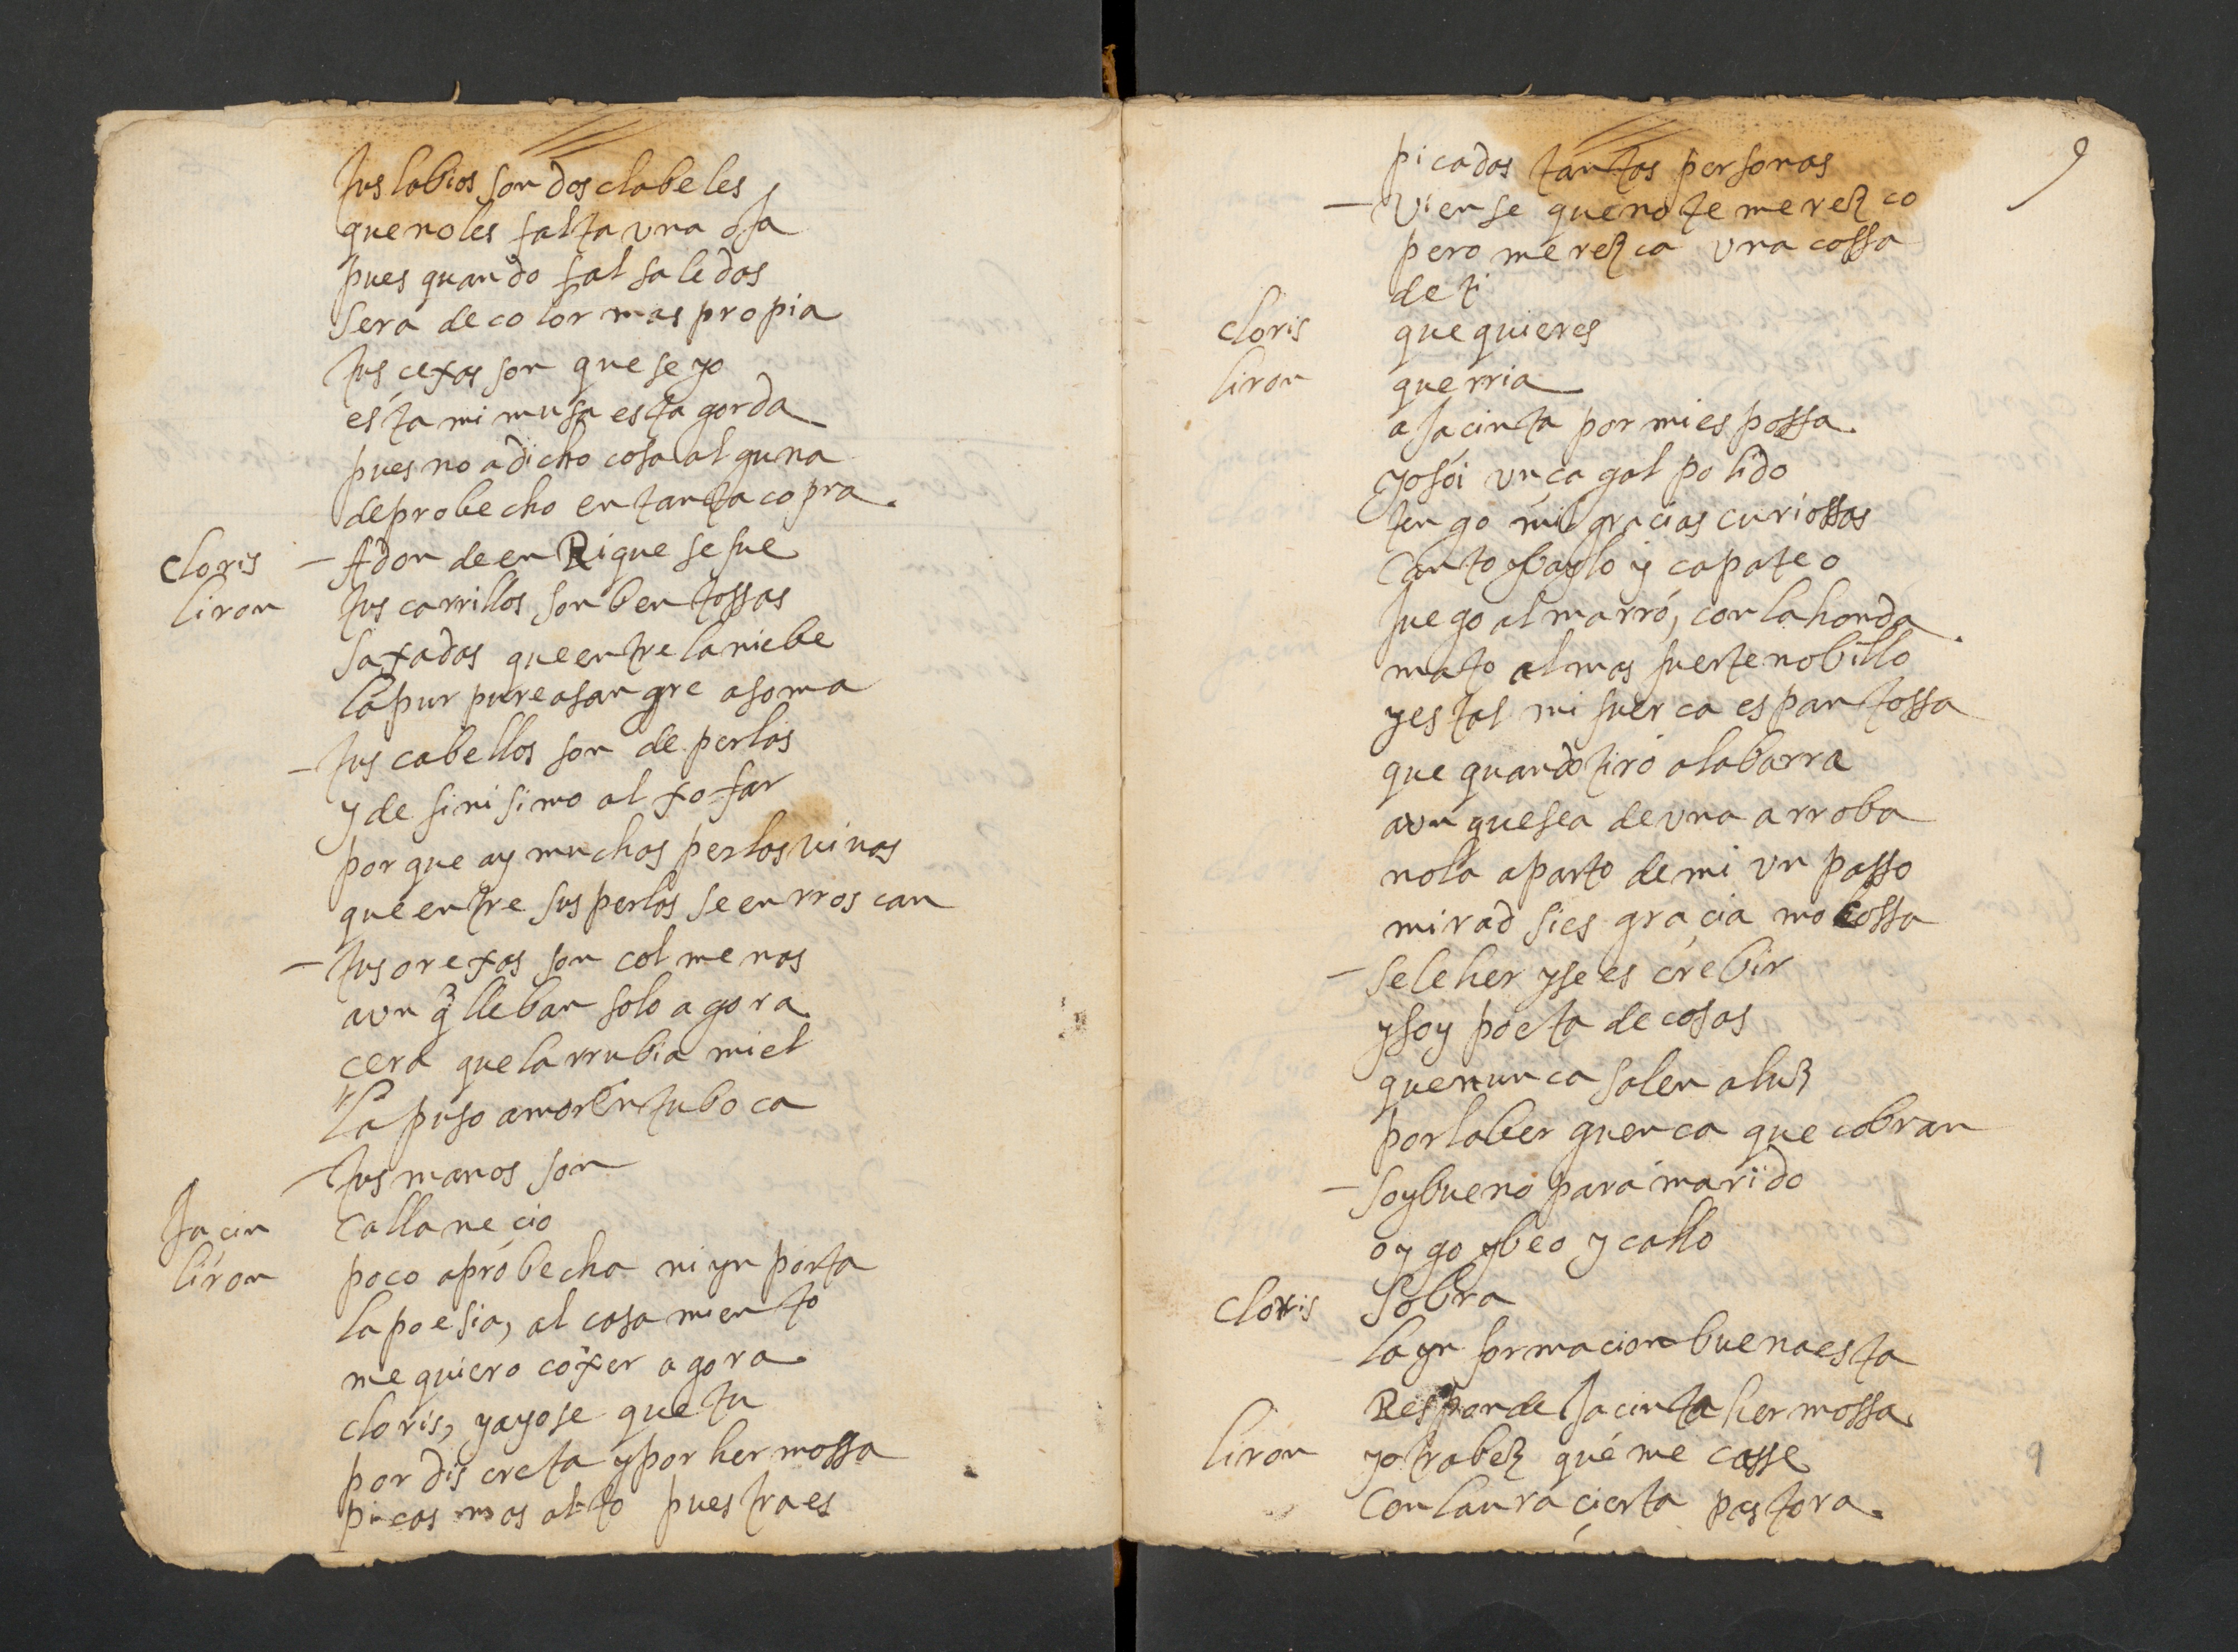 tus labios son dos clabeles
que no les falta una oJa
pues quando fal sa le das
sera de color mas propia
tus cexas son que se yo
esta mi musa esta gorda
pues no a dicho cosa alguna
de probecho en tanta copra.
cloris — Adon de en Rique se fue
liron tus carrillos son bentossas
saxadas que entre la niebe
la purpurea sangre asoma
— tus cabellos son de perlas
y de finisimo alxofar
por que ay muchas perlas vivas
que entre sus perlas se enrroscan
— tus orexas son colmenas
aun q̃ lleban solo agora
cera que la rrubia miel
la puso amor en tu boca
— tus manos son
Jacin calla neçio
liron poco aprobecha ni ynporta
la poesia, al casamiento
me quiero coxer agora
cloris, ya yo se que tu
por discreta y por hermossa
picas mas alto pues traes
9
picadas tantas personas
— Vien se que no te merezco
pero merezca una cossa
de ti
cloris que quieres
liron querria
a Jacinta por mi espossa.
yo soi un çagal polido
tengo mil gracias curiossas
canto y baylo y çapateo
Juego al marro, con la honda
mato al mas fuerte nobillo
y es tal mi fuerça espantossa
que quando tiro a la barra
aun que sea de una arroba
no la aparto de mi un passo
mirad si es graçia mocossa
— se leher y se escrebir
y soy poeta de cosas
que nunca salen a luz
por laber guenca que cobran
— soy bueno para marido
oygo y beo y callo
cloris sobra
la ynformacion buena esta
Responde Jacinta hermossa
liron yo trabez que me casse
con laura çierta pastora.
9